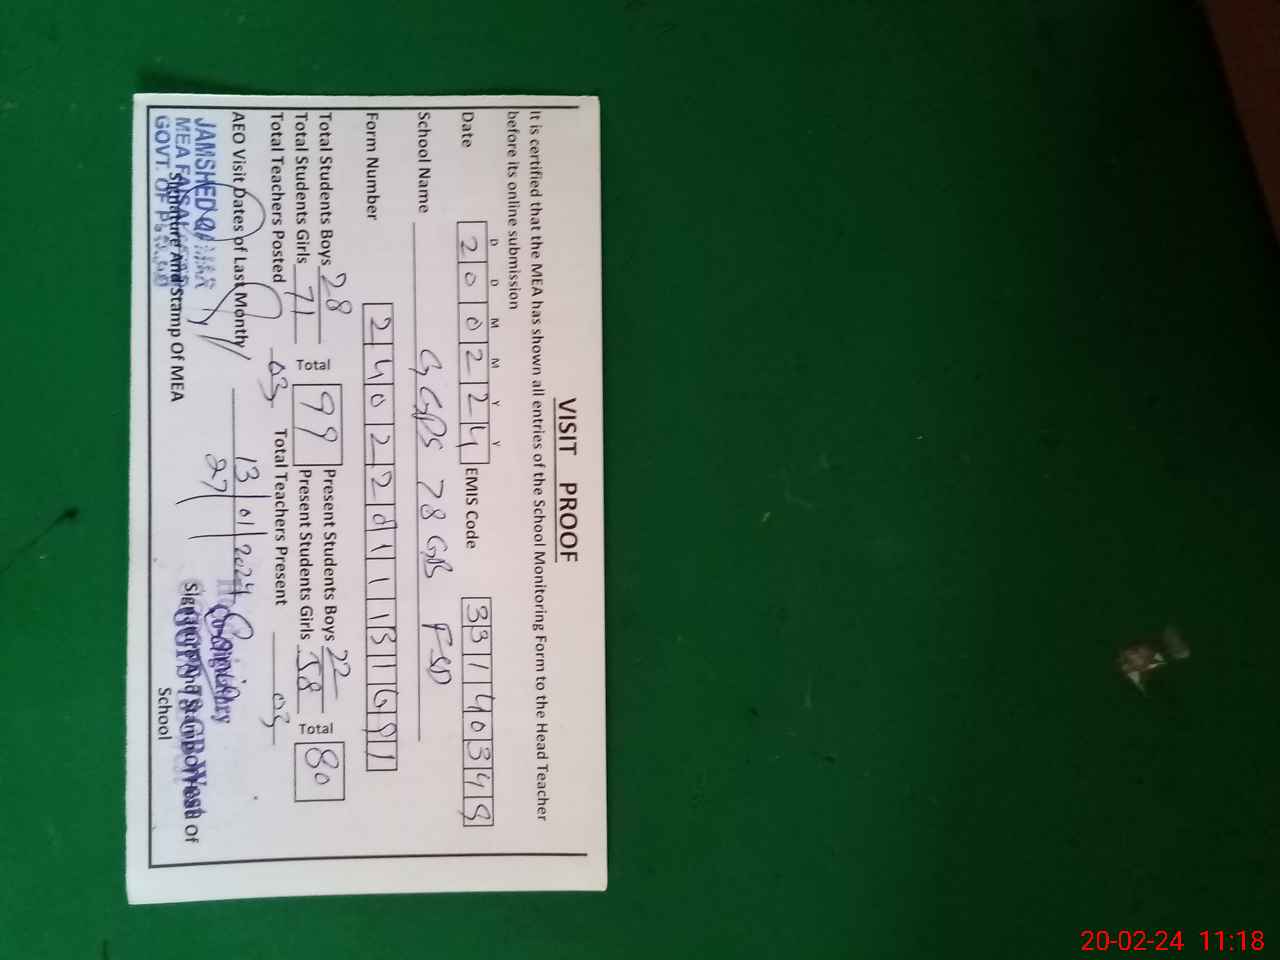 VISIT PROOF
It is certified that the MEA has shown all entries of the School Monitoring Form to the Head Teacher
before its online submission
D D M M Y Y
Date 200224 EMIS Code 33140349
School Name GGPS 78 GB FSD
Form Number 2402201113169
Total Students Boys 28 Present Students Boys 22
Total 99 Total 80
Total Students Girls 71 Present Students Girls 58
Total Teachers Posted 03 Total Teachers Present 03
AEO Visit Dates of Last Monthy 13 01 2024
27
JAMSHED
MEA FAISAL
GOVT. OF
Signature And Stamp Of MEA
Signature And Stamp Of Head of
School
20-02-24 11:18